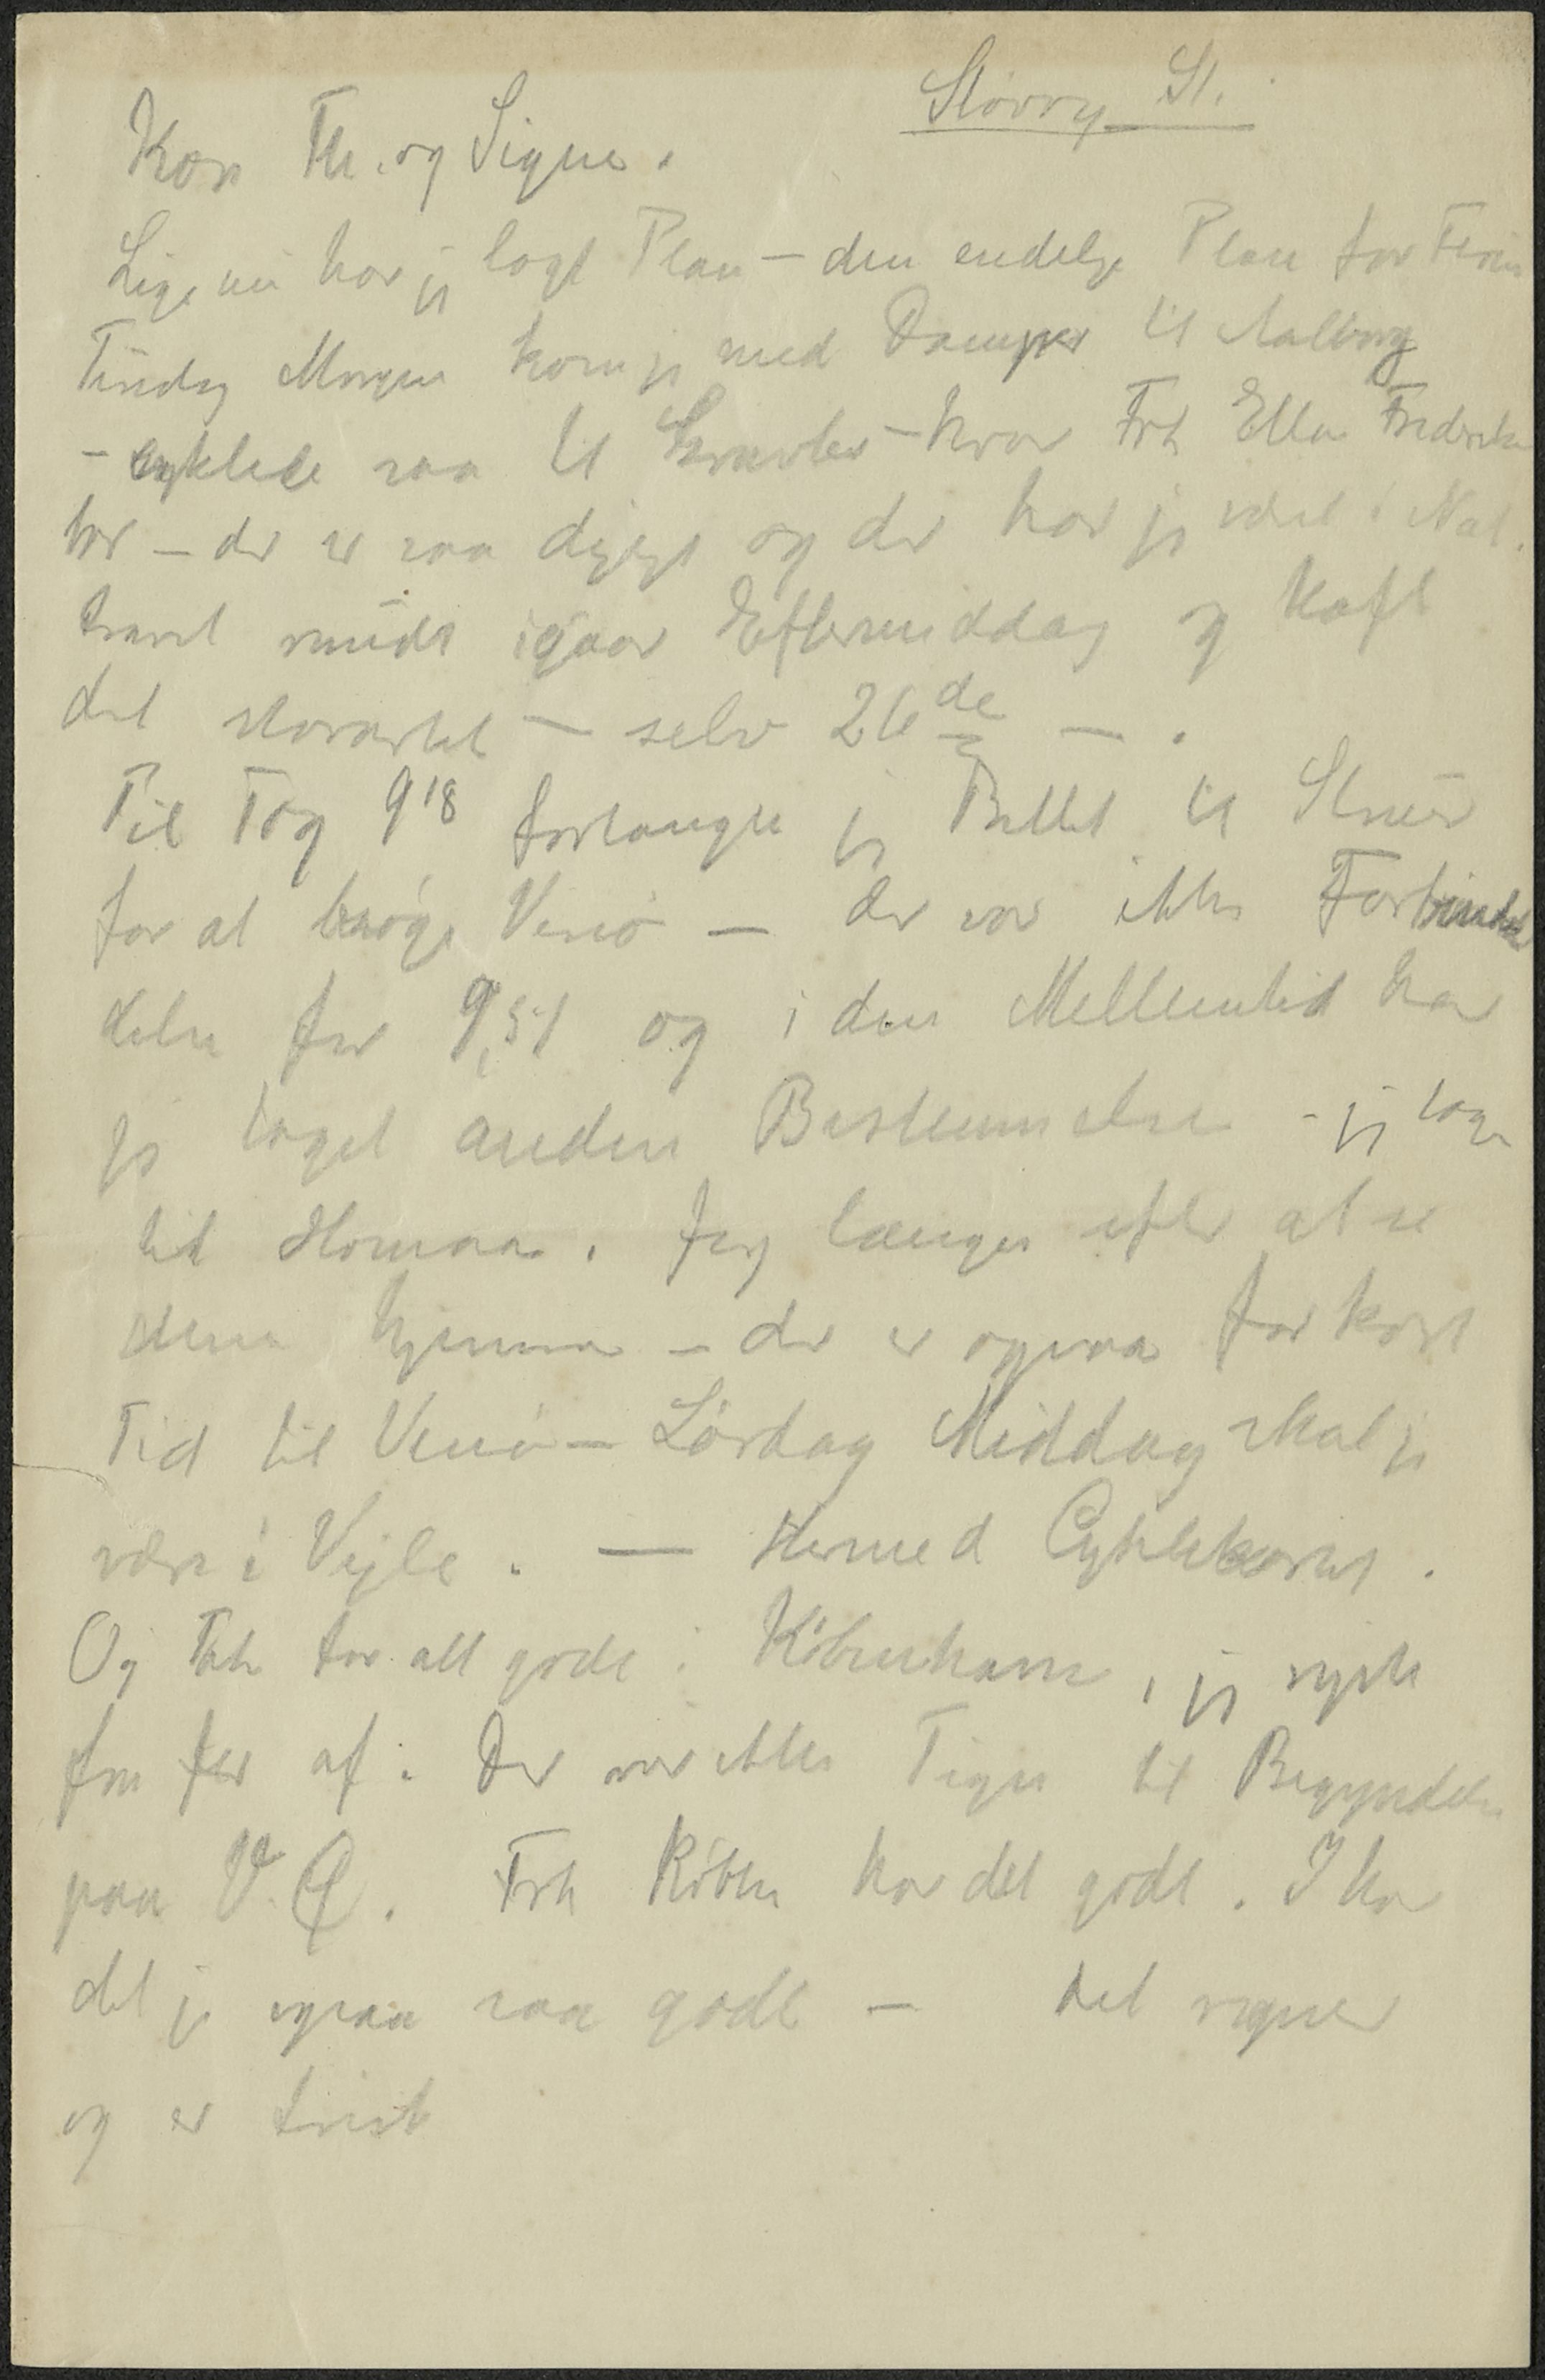 Støvry St.
Kære Th. og Signe.
Lige nu har jeg lagt Plan – den endelige Plan for Ferien
Tirsdag Morgen kom jeg med Damper til Aalborg
– cyklede saa til – hvor Frk Ella Frederiksen
bor – der er saa dejligt og der har jeg været i Nat.
travet rundt igaar Eftermiddag og haft
det storartet – selv 26de – .
Til Tog 9 18 forlangte jeg Billet til Struer
for at besøge Venø – der var ikke Forbindel
delse før 9,51 og i den Mellemtid har
jeg taget anden Bestemmelse – jeg tager
til Hornum. Jeg længes efter at se
dem hjemme – der er ogsaa for kort
Tid til Venø – Lørdag Middag skal jeg
være i Vejle. — Hermed Cyklekortet.
Og Tak for alt godt i København, jeg rejste
fra jer af. Der var ikke Tegn til Begyndelse
paa V.Q. Frk Købke har det godt. I har
det jo ogsaa saa godt – Det regner
og er trist